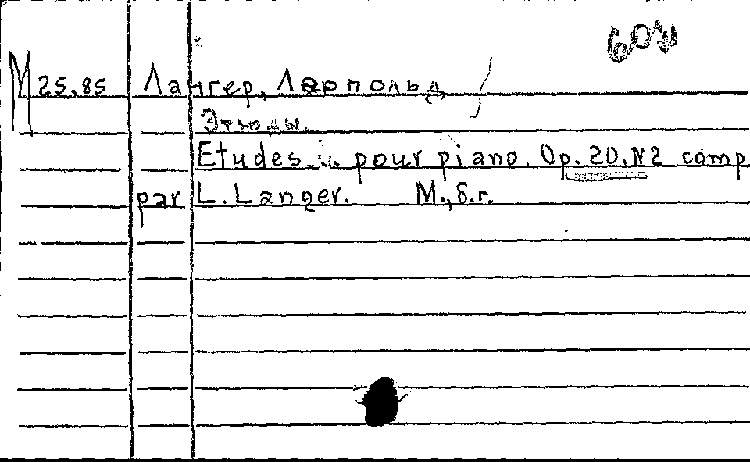 М 25.85 Лангер, Леопольд
Этюды.
Etudes pour piano. Op. 20, N2 comp.
par L. Langer. М., б.г.